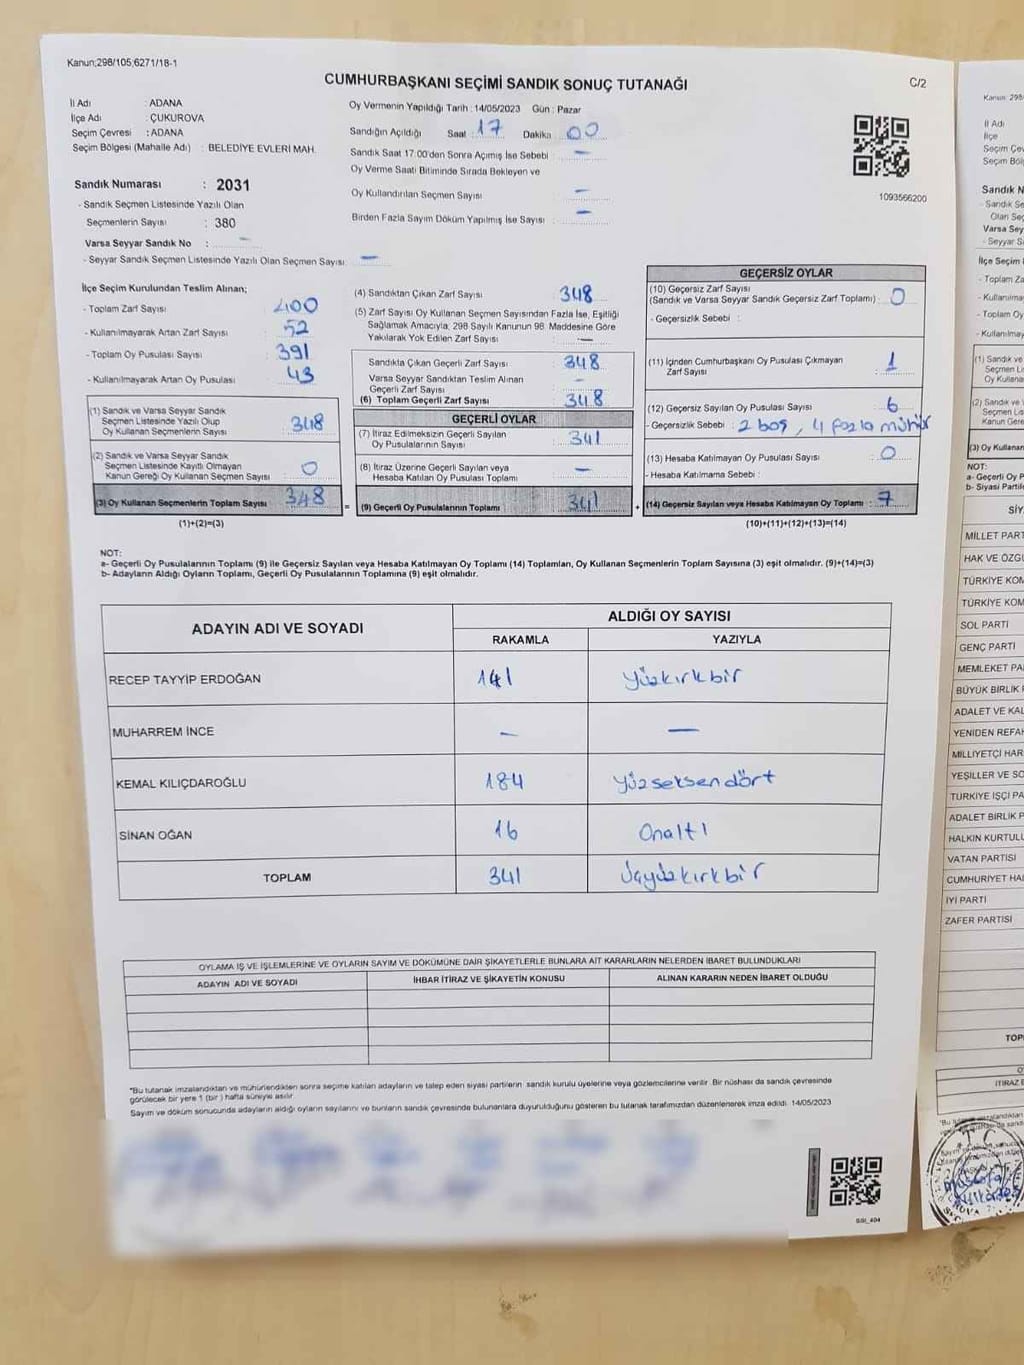 Kanun;298/105;6271/18-1
CUMHURBAŞKANI SEÇİMİ SANDIK SONUÇ TUTANAĞI
C/2
İl Adı : ADANA
İlçe Adı : ÇUKUROVA
Seçim Çevresi : ADANA
Seçim Bölgesi (Mahalle Adı) : BELEDİYE EVLERİ MAH.
Sandık Numarası : 2031
- Sandık Seçmen Listesinde Yazılı Olan
Seçmenlerin Sayısı : 380
Varsa Seyyar Sandık No : –
- Seyyar Sandık Seçmen Listesinde Yazılı Olan Seçmen Sayısı: –
Oy Vermenin Yapıldığı Tarih : 14/05/2023 Gün : Pazar
Sandığın Açıldığı Saat : 17 Dakika : 00
Sandık Saat 17:00'den Sonra Açımış İse Sebebi : –
Oy Verme Saati Bitiminde Sırada Bekleyen ve
Oy Kullandırılan Seçmen Sayısı : –
Birden Fazla Sayım Döküm Yapılmış İse Sayısı : –
1093566200
İlçe Seçim Kurulundan Teslim Alınan;
- Toplam Zarf Sayısı : 400
- Kullanılmayarak Artan Zarf Sayısı : 52
- Toplam Oy Pusulası Sayısı : 391
- Kullanılmayarak Artan Oy Pusulası : 43
(1) Sandık ve Varsa Seyyar Sandık
Seçmen Listesinde Yazılı Olup
Oy Kullanan Seçmenlerin Sayısı : 348
(2) Sandık ve Varsa Seyyar Sandık
Seçmen Listesinde Kayıtlı Olmayan
Kanun Gereği Oy Kullanan Seçmen Sayısı : 0
(3) Oy Kullanan Seçmenlerin Toplam Sayısı : 348
(1)+(2)=(3)
(4) Sandıktan Çıkan Zarf Sayısı : 348
(5) Zarf Sayısı Oy Kullanan Seçmen Sayısından Fazla İse, Eşitliği
Sağlamak Amacıyla, 298 Sayılı Kanunun 98. Maddesine Göre
Yakılarak Yok Edilen Zarf Sayısı : –
Sandıkta Çıkan Geçerli Zarf Sayısı : 348
Varsa Seyyar Sandıktan Teslim Alınan
Geçerli Zarf Sayısı : –
(6) Toplam Geçerli Zarf Sayısı : 348
GEÇERLİ OYLAR
(7) İtiraz Edilmeksizin Geçerli Sayılan
Oy Pusulalarının Sayısı : 341
(8) İtiraz Üzerine Geçerli Sayılan veya
Hesaba Katılan Oy Pusulası Toplamı : –
= (9) Geçerli Oy Pusulalarının Toplamı : 341
GEÇERSİZ OYLAR
(10) Geçersiz Zarf Sayısı
(Sandık ve Varsa Seyyar Sandık Geçersiz Zarf Toplamı) : 0
- Geçersizlik Sebebi :
(11) İçinden Cumhurbaşkanı Oy Pusulası Çıkmayan
Zarf Sayısı : 1
(12) Geçersiz Sayılan Oy Pusulası Sayısı : 6
- Geçersizlik Sebebi : 2 boş, 4 fazla mühür
(13) Hesaba Katılmayan Oy Pusulası Sayısı : 0
- Hesaba Katılmama Sebebi :
+ (14) Geçersiz Sayılan veya Hesaba Katılmayan Oy Toplamı : 7
(10)+(11)+(12)+(13)=(14)
NOT:
a- Geçerli Oy Pusulalarının Toplamı (9) ile Geçersiz Sayılan veya Hesaba Katılmayan Oy Toplamı (14) Toplamları, Oy Kullanan Seçmenlerin Toplam Sayısına (3) eşit olmalıdır. (9)+(14)=(3)
b- Adayların Aldığı Oyların Toplamı, Geçerli Oy Pusulalarının Toplamına (9) eşit olmalıdır.
ADAYIN ADI VE SOYADI
ALDIĞI OY SAYISI
RAKAMLA YAZIYLA
RECEP TAYYİP ERDOĞAN 141 Yüzkırkbir
MUHARREM İNCE – –
KEMAL KILIÇDAROĞLU 184 Yüzseksendört
SİNAN OĞAN 16 Onaltı
TOPLAM 341 Üçyüzkırkbir
OYLAMA İŞ VE İŞLEMLERİNE VE OYLARIN SAYIM VE DÖKÜMÜNE DAİR ŞİKAYETLERLE BUNLARA AİT KARARLARIN NELERDEN İBARET BULUNDUKLARI
ADAYIN ADI VE SOYADI İHBAR İTİRAZ VE ŞİKAYETİN KONUSU ALINAN KARARIN NEDEN İBARET OLDUĞU
*Bu tutanak imzalandıktan ve mühürlendikten sonra seçime katılan adayların ve talep eden siyasi partilerin sandık kurulu üyelerine veya gözlemcilerine verilir. Bir nüshası da sandık çevresinde
görülecek bir yere 1 (bir) hafta süreyle asılır.
Sayım ve döküm sonucunda adayların aldığı oyların sayılarını ve bunların sandık çevresinde bulunanlara duyurulduğunu gösteren bu tutanak tarafımızdan düzenlenerek imza edildi. 14/05/2023
Kanun 298
İl Adı
İlçe
Sandık N
Varsa Sey
İlçe Seçim
- Toplam Za
- Kullanılma
- Toplam Oy
- Kullanılmay
(1) Sandık ve
Seçmen Lis
Oy Kullanan
(3) Oy Kullanan
NOT:
a- Geçerli Oy P
b- Siyasi Partile
MİLLET PART
HAK VE ÖZG
TÜRKİYE KOM
TÜRKİYE KOM
SOL PARTİ
GENÇ PARTİ
MEMLEKET PA
BÜYÜK BİRLİK
ADALET VE KAL
YENİDEN REFA
MİLLİYETÇİ HAR
YEŞİLLER VE SO
TÜRKİYE İŞÇİ PA
ADALET BİRLİK P
HALKIN KURTULU
VATAN PARTİSİ
CUMHURİYET HA
İYİ PARTİ
ZAFER PARTİSİ
TOP
İTİRAZ